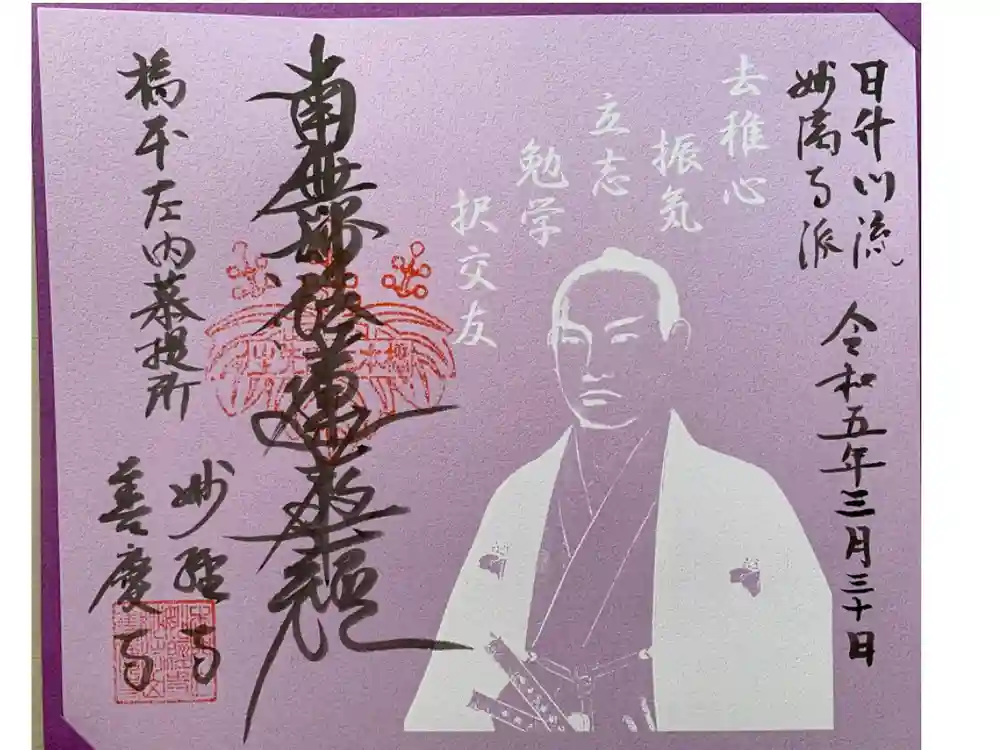 日什門流
妙満寺派
令和五年三月三十日
去稚心
振気
立志
勉学
択交友
南無妙法蓮華経
橋本左内菩提所
妙経寺
善慶寺